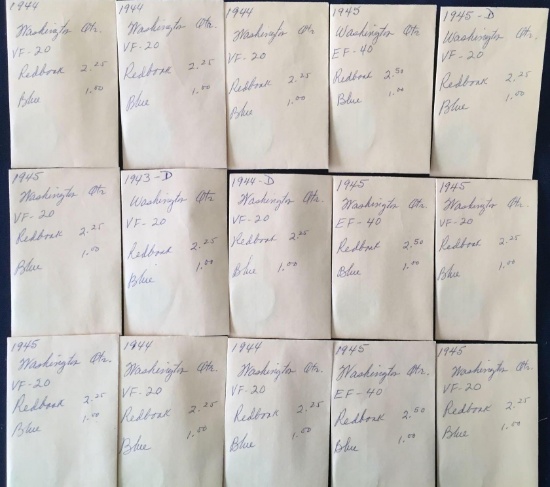 1944
Washington Qtr.
VF-20
Redbook 2.25
Blue 1.00
1944
Washington Qtr.
VF-20
Redbook 2.25
Blue 1.00
1944
Washington Qtr.
VF-20
Redbook 2.25
Blue 1.00
1945
Washington Qtr.
EF-40
Redbook 2.50
Blue 1.00
1945-D
Washington Qtr.
VF-20
Redbook 2.25
Blue 1.00
1945
Washington Qtr.
VF-20
Redbook 2.25
Blue 1.00
1943-D
Washington Qtr.
VF-20
Redbook 2.25
Blue 1.00
1944-D
Washington Qtr.
VF-20
Redbook 2.25
Blue 1.00
1945
Washington Qtr.
EF-40
Redbook 2.50
Blue 1.00
1945
Washington Qtr.
VF-20
Redbook 2.25
Blue 1.00
1945
Washington Qtr.
VF-20
Redbook 2.25
Blue 1.00
1944
Washington Qtr.
VF-20
Redbook 2.25
Blue 1.00
1944
Washington Qtr.
VF-20
Redbook 2.25
Blue 1.00
1945
Washington Qtr.
EF-40
Redbook 2.50
Blue 1.00
1945
Washington Qtr.
VF-20
Redbook 2.25
Blue 1.00